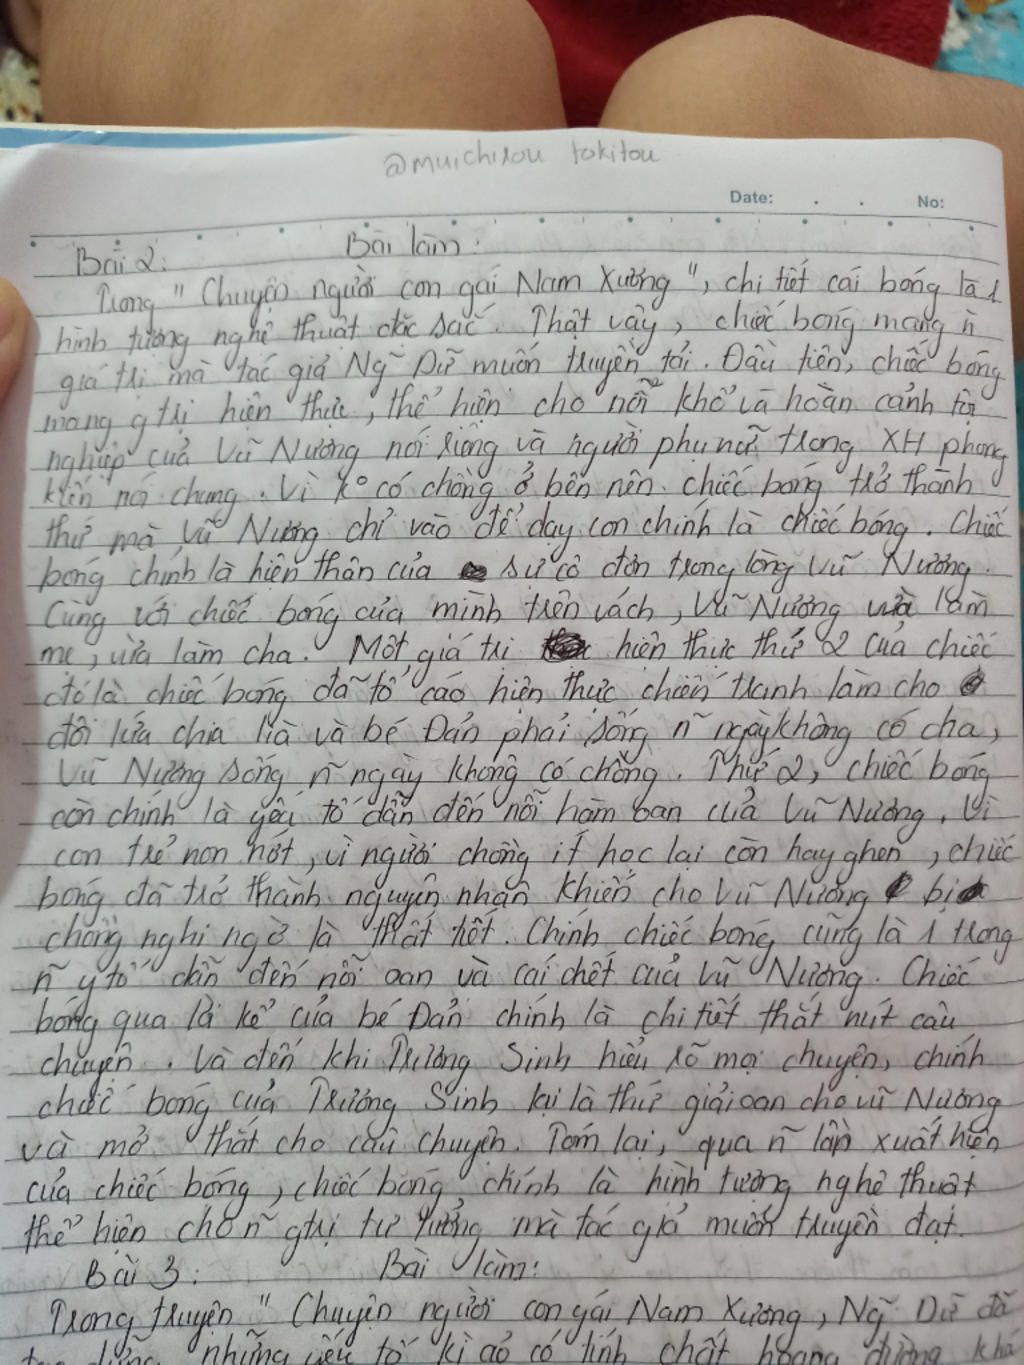 @muichirou tokitou
Date: . . No:
Bài 2: Bài làm:
Trong " Chuyện người con gái Nam Xương ", chi tiết cái bóng là 1
hình tượng nghệ thuật đặc sắc. Thật vậy, chiếc bóng mang n~
giá trị mà tác giả Ng~ Dữ muốn truyền tải. Đầu tiên, chiếc bóng
mang gtrị hiện thực, thể hiện cho nỗi khổ và hoàn cảnh tội
nghiệp của Vũ Nương nói riêng và người phụ nữ trong XH phong
kiến nói chung. Vì k° có chồng ở bên nên chiếc bóng trở thành
thứ mà Vũ Nương chỉ vào để dạy con chính là chiếc bóng. Chiếc
bóng chính là hiện thân của sự cô đơn trong lòng Vũ Nương.
Cùng với chiếc bóng của mình trên vách, Vũ Nương vừa làm
mẹ, vừa làm cha. Một giá trị hiện thực thứ 2 của chiếc
đó là chiếc bóng đã tố cáo hiện thực chiến tranh làm cho
đôi lứa chia lià và bé Đản phải sống n~ ngày không có cha,
Vũ Nương sống n~ ngày không có chồng. Thứ 2, chiếc bóng
còn chính là yếu tố dẫn đến nỗi hàm oan của Vũ Nương. Vì
con trẻ non nớt, vì người chồng ít học lại còn hay ghen, chiếc
bóng đã trở thành nguyên nhân khiến cho Vũ Nương bị
chồng nghi ngờ là thất tiết. Chính chiếc bóng cũng là 1 trong
n~ y tố dẫn đến nỗi oan và cái chết của Vũ Nương. Chiếc
bóng qua lời kể của bé Đản chính là chi tiết thắt nút câu
chuyện. Và đến khi Trương Sinh hiểu rõ mọi chuyện, chính
chiếc bóng của Trương Sinh lại là thứ giải oan cho Vũ Nương
và mở thắt cho câu chuyện. Tóm lại, qua n~ lần xuất hiện
của chiếc bóng, chiếc bóng chính là hình tượng nghệ thuật
thể hiện cho n~ gtrị tư tưởng mà tác giả muốn truyền đạt.
Bài 3: Bài làm:
Trong truyện " Chuyện người con gái Nam Xương, Ng~ Dữ đã
những yếu tố kì ảo có tính chất hoang đường